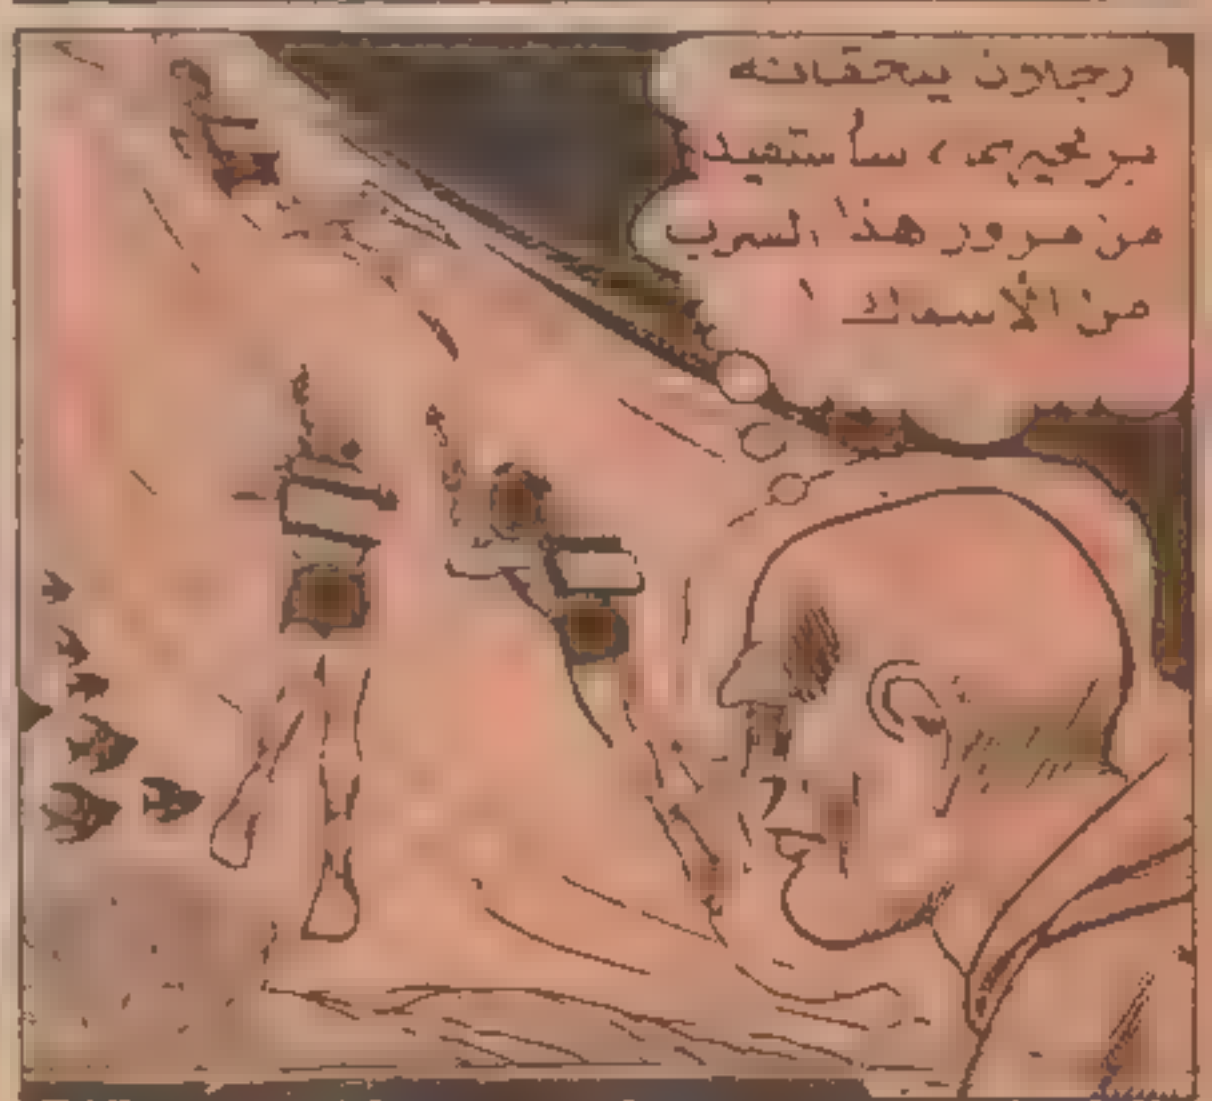 رجلان يلحقانه
بي لمجرى، سأستفيد
من مرور هذا السرب
من الأسماك